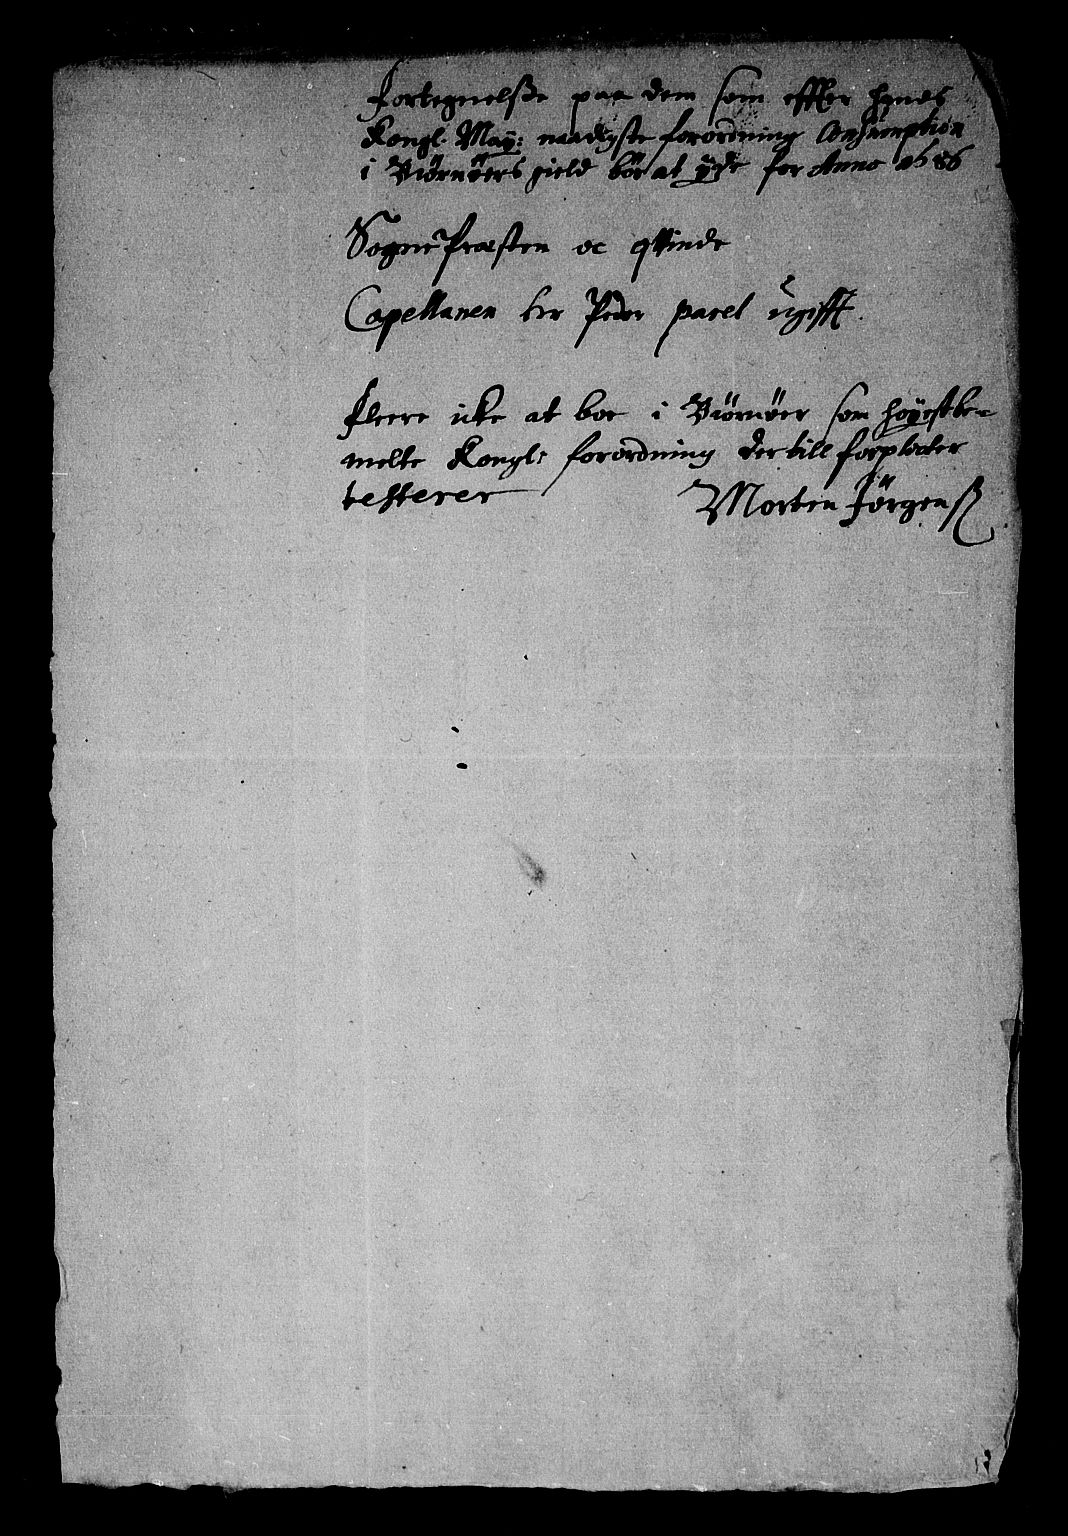 Fortegnelsße paa dem som effter hands
Kongl: May: naadigste forordning Consumption
i Biørnøers gield bør at yde for Anno 1686
Sogne Præsten oc qvinde
Capellanen her Peder parel ugifft.
Fleere icke at boe i Biørnøer som høyestbe-
melte Kongl: forordning der till forplicter
testerer Morten Jørgenß